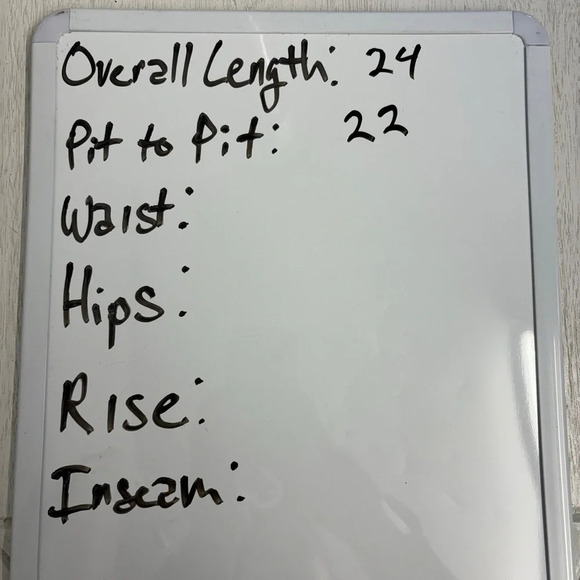 Overall Length: 24
Pit to Pit: 22
Waist:
Hips:
Rise:
Inseam: